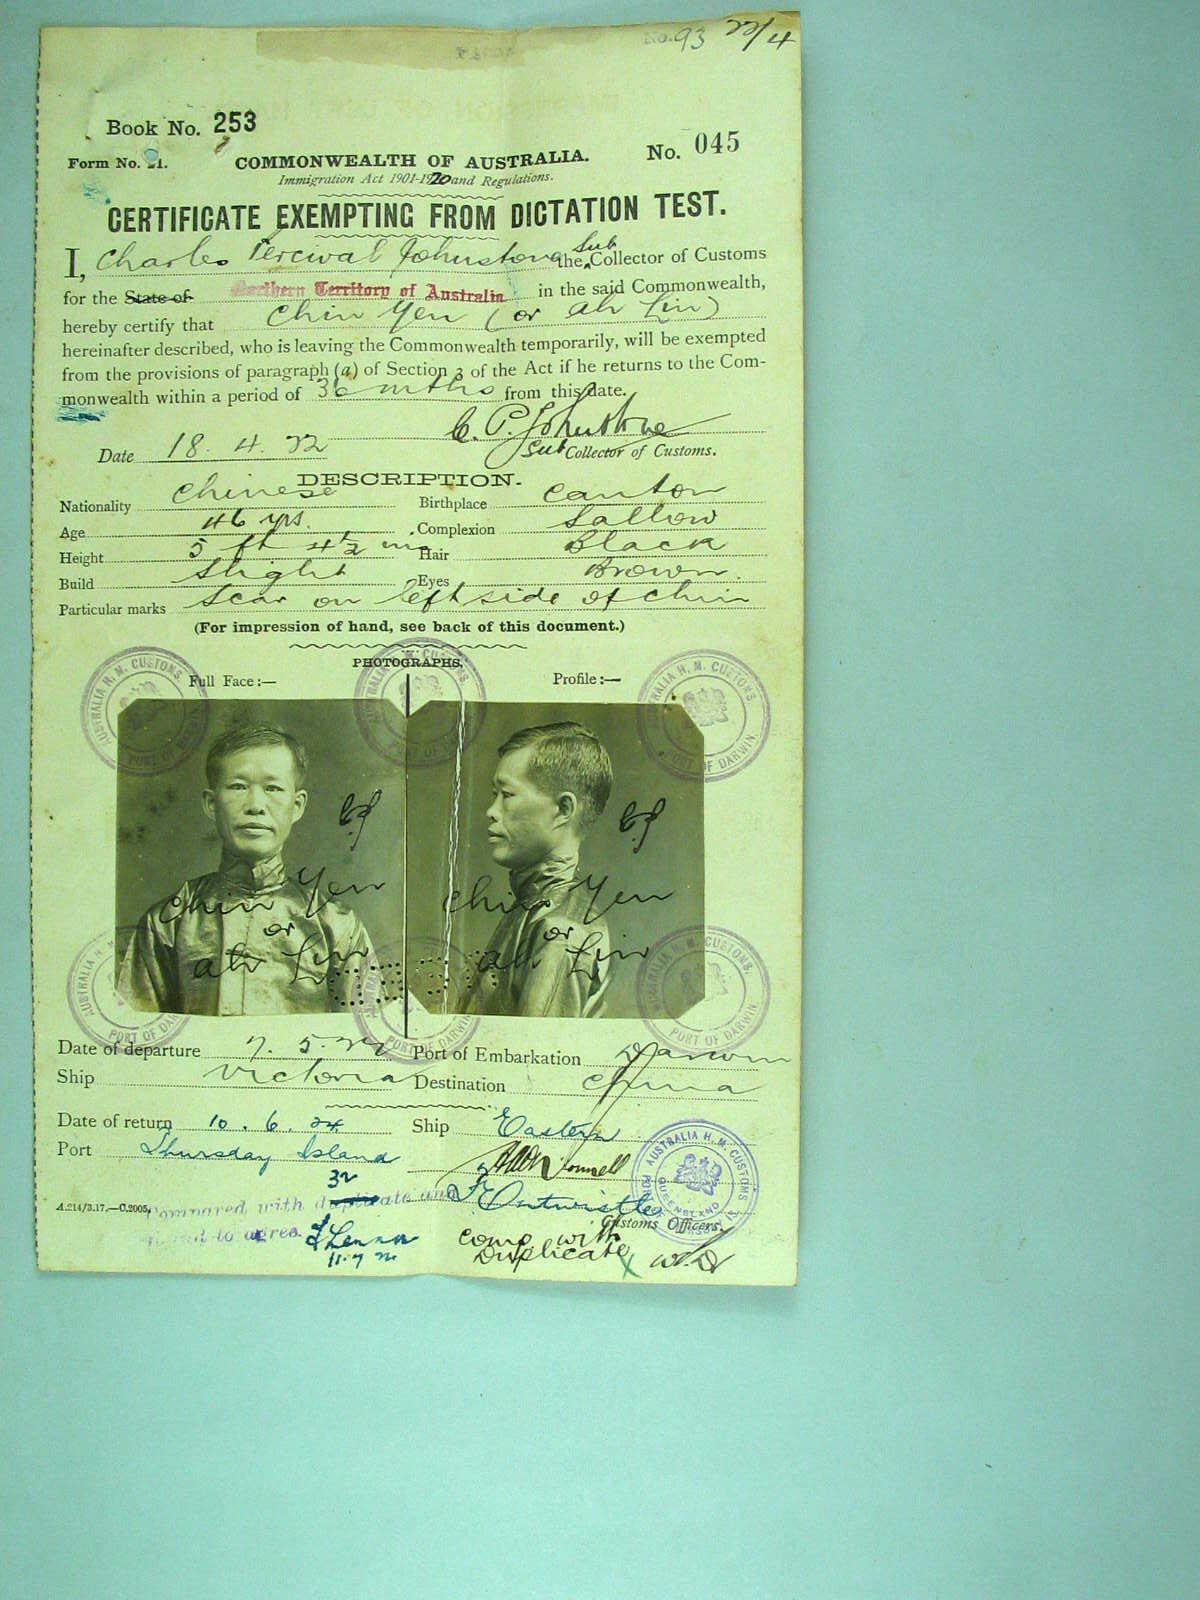 No. 93 22/4
Book No. 253
Form No. 21.
COMMONWEALTH OF AUSTRALIA.
No. 045
Immigration Act 1901-1920 and Regulations.
CERTIFICATE EXEMPTING FROM DICTATION TEST.
I, Charles Percival Johnstone the Sub Collector of Customs
for the State of Northern Territory of Australia in the said Commonwealth,
hereby certify that Chin Yen (or Ah Lin)
hereinafter described, who is leaving the Commonwealth temporarily, will be exempted
from the provisions of paragraph (a) of Section 3 of the Act if he returns to the Com-
monwealth within a period of 36 mths from this date.
C. P. Johnstone
Date 18. 4. 22 Sub Collector of Customs.
DESCRIPTION.
Nationality Chinese Birthplace Canton
Age 46 yrs. Complexion Sallow
Height 5 ft 4½ in Hair Black
Build Slight Eyes Brown.
Particular marks Scar on left side of chin
(For impression of hand, see back of this document.)
PHOTOGRAPHS.
Full Face:— Profile:—
AUSTRALIA H. M. CUSTOMS. PORT OF DARWIN
AUSTRALIA H. M. CUSTOMS. PORT OF DARWIN
Chin Yen
or
Ah Lin
Chin Yen
or
Ah Lin
AUSTRALIA H. M. CUSTOMS. PORT OF DARWIN
PORT OF DARWIN
AUSTRALIA H. M. CUSTOMS. PORT OF DARWIN
Date of departure 7. 5. 22 Port of Embarkation Darwin
Ship Victoria Destination China
Date of return 10. 6. 24 Ship Eastern
Port Thursday Island
32
F Entwistle
AUSTRALIA H. M. CUSTOMS QUEENSLAND
Customs Officers.
A.214/3.17.—C.2005.
Compared with duplicate and
found to agree.
11.7.22
Comp with
Duplicate